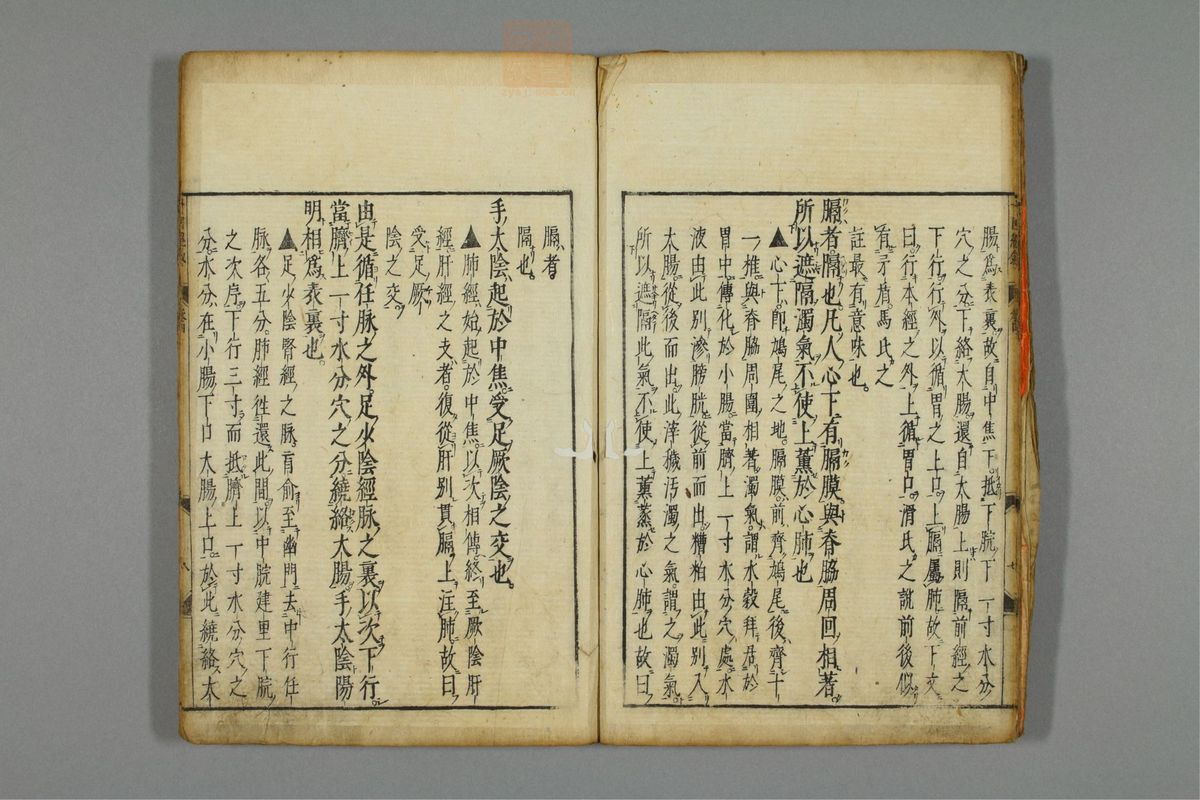 腸爲表裏故自中焦下抵下脘下一寸水分
穴之分下絡大腸還自大腸上則隔前經之
下行行外以循胃之上口上膈屬肺故下文
曰行本經之外上循胃口滑氏之說前後似
有矛盾馬氏之
註最有意味也
膈者隔也凡人心下有膈膜與脊脇周回相著
所以遮隔濁氣不使上薰於心肺也
▲心下卽鳩尾之地膈膜前齊鳩尾後齊十
一椎與脊脇周圍相著濁氣謂水穀拜居於
胃中傳化於小腸當臍上一寸水分穴處水
液由此別滲膀胱從前而出糟粕由此別入
大腸從後而出此滓穢汚濁之氣謂之濁氣
所以遮隔此氣不使上薰蒸於心肺也故曰
膈者
隔也
手太陰起於中焦受足厥陰之交也
▲肺經始起於中焦以次相傳終至厥陰肝
經肝經之支者復從肝別貫膈上注肺故曰
受足厥
陰之交
由是循任脉之外足少陰經脉之裏以次下行
當臍上一寸水分穴之分繞絡大腸手太陰陽
明相爲表裏也
▲足少陰腎經之脉肓俞至幽門去中行任
脉各五分肺經徃還此間以中脘建里下脘
之次序下行三寸而抵臍上一寸水分穴之
分水分在小腸下口大腸上口於此繞絡大